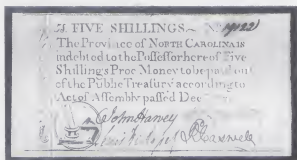 5S. FIVE SHILLINGS. No 19122
The Province of NORTH CAROLINA is
indebted to the Possessor hereof Five
Shillings Proc Money to be paid out
of the Public Treasury according to
Act of Assembly passed Dec
John Harvey
Lewis R Caswell